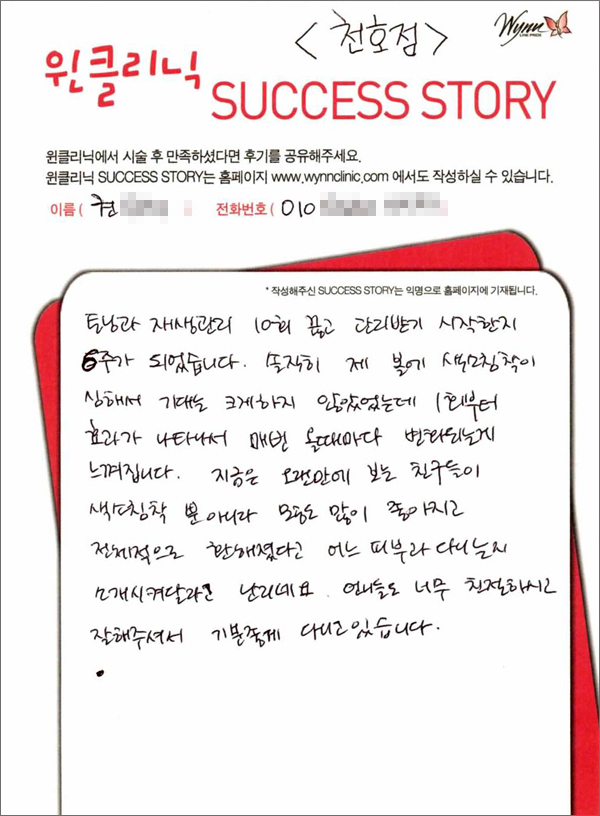 <천호점>
Wynn
윈클리닉
SUCCESS STORY
윈클리닉에서 시술 후 만족하셨다면 후기를 공유해주세요.
윈클리닉 SUCCESS STORY는 홈페이지 www.wynnclinic.com 에서도 작성하실 수 있습니다.
이름 ( 권 전화번호 ( 010
* 작성해주신 SUCCESS STORY는 익명으로 홈페이지에 기재됩니다.
토닝과 재생관리 10회 끊고 관리받기 시작한지
6주가 되었습니다. 솔직히 제 볼에 색소침착이
심해서 기대는 크게하지 않았었는데 1회부터
효과가 나타나서 매번 올때마다 변화되는게
느껴집니다. 지금은 오랜만에 보는 친구들이
색소침착 뿐 아니라 모공도 많이 좋아지고
전체적으로 환해졌다고 어느 피부과 다니는지
소개시켜달라고 난리네요. 언니들도 너무 친절하시고
잘해주셔서 기분좋게 다니고있습니다.